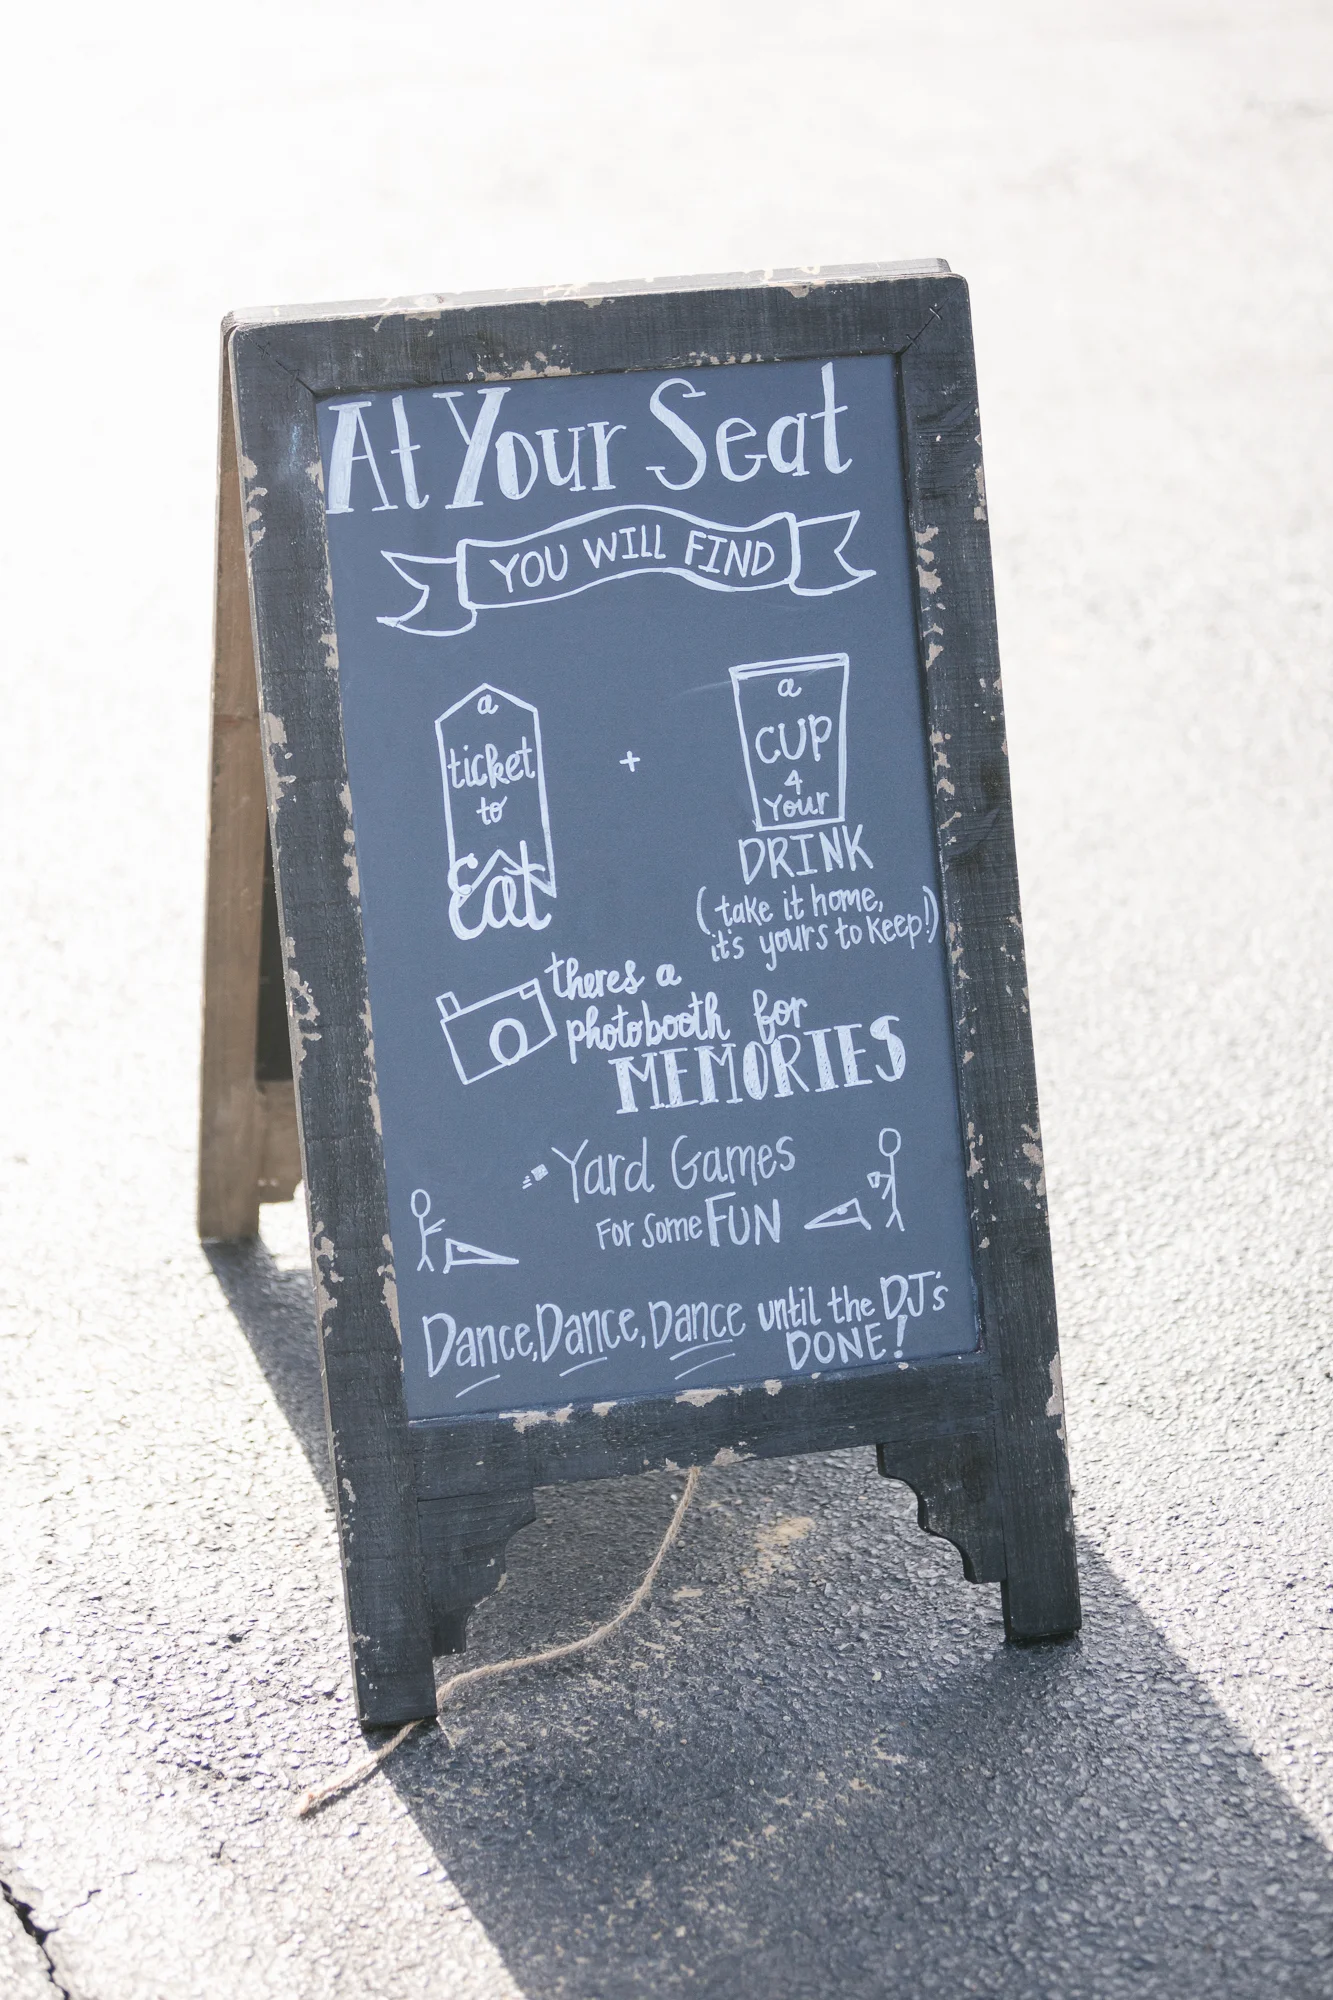 At Your Seat
YOU WILL FIND
a
ticket
to
Eat
+
a
CUP
4
Your
DRINK
(take it home,
it's yours to keep!)
theres a
photobooth for
MEMORIES
Yard Games
For Some FUN
Dance, Dance, Dance until the DJ's
DONE!